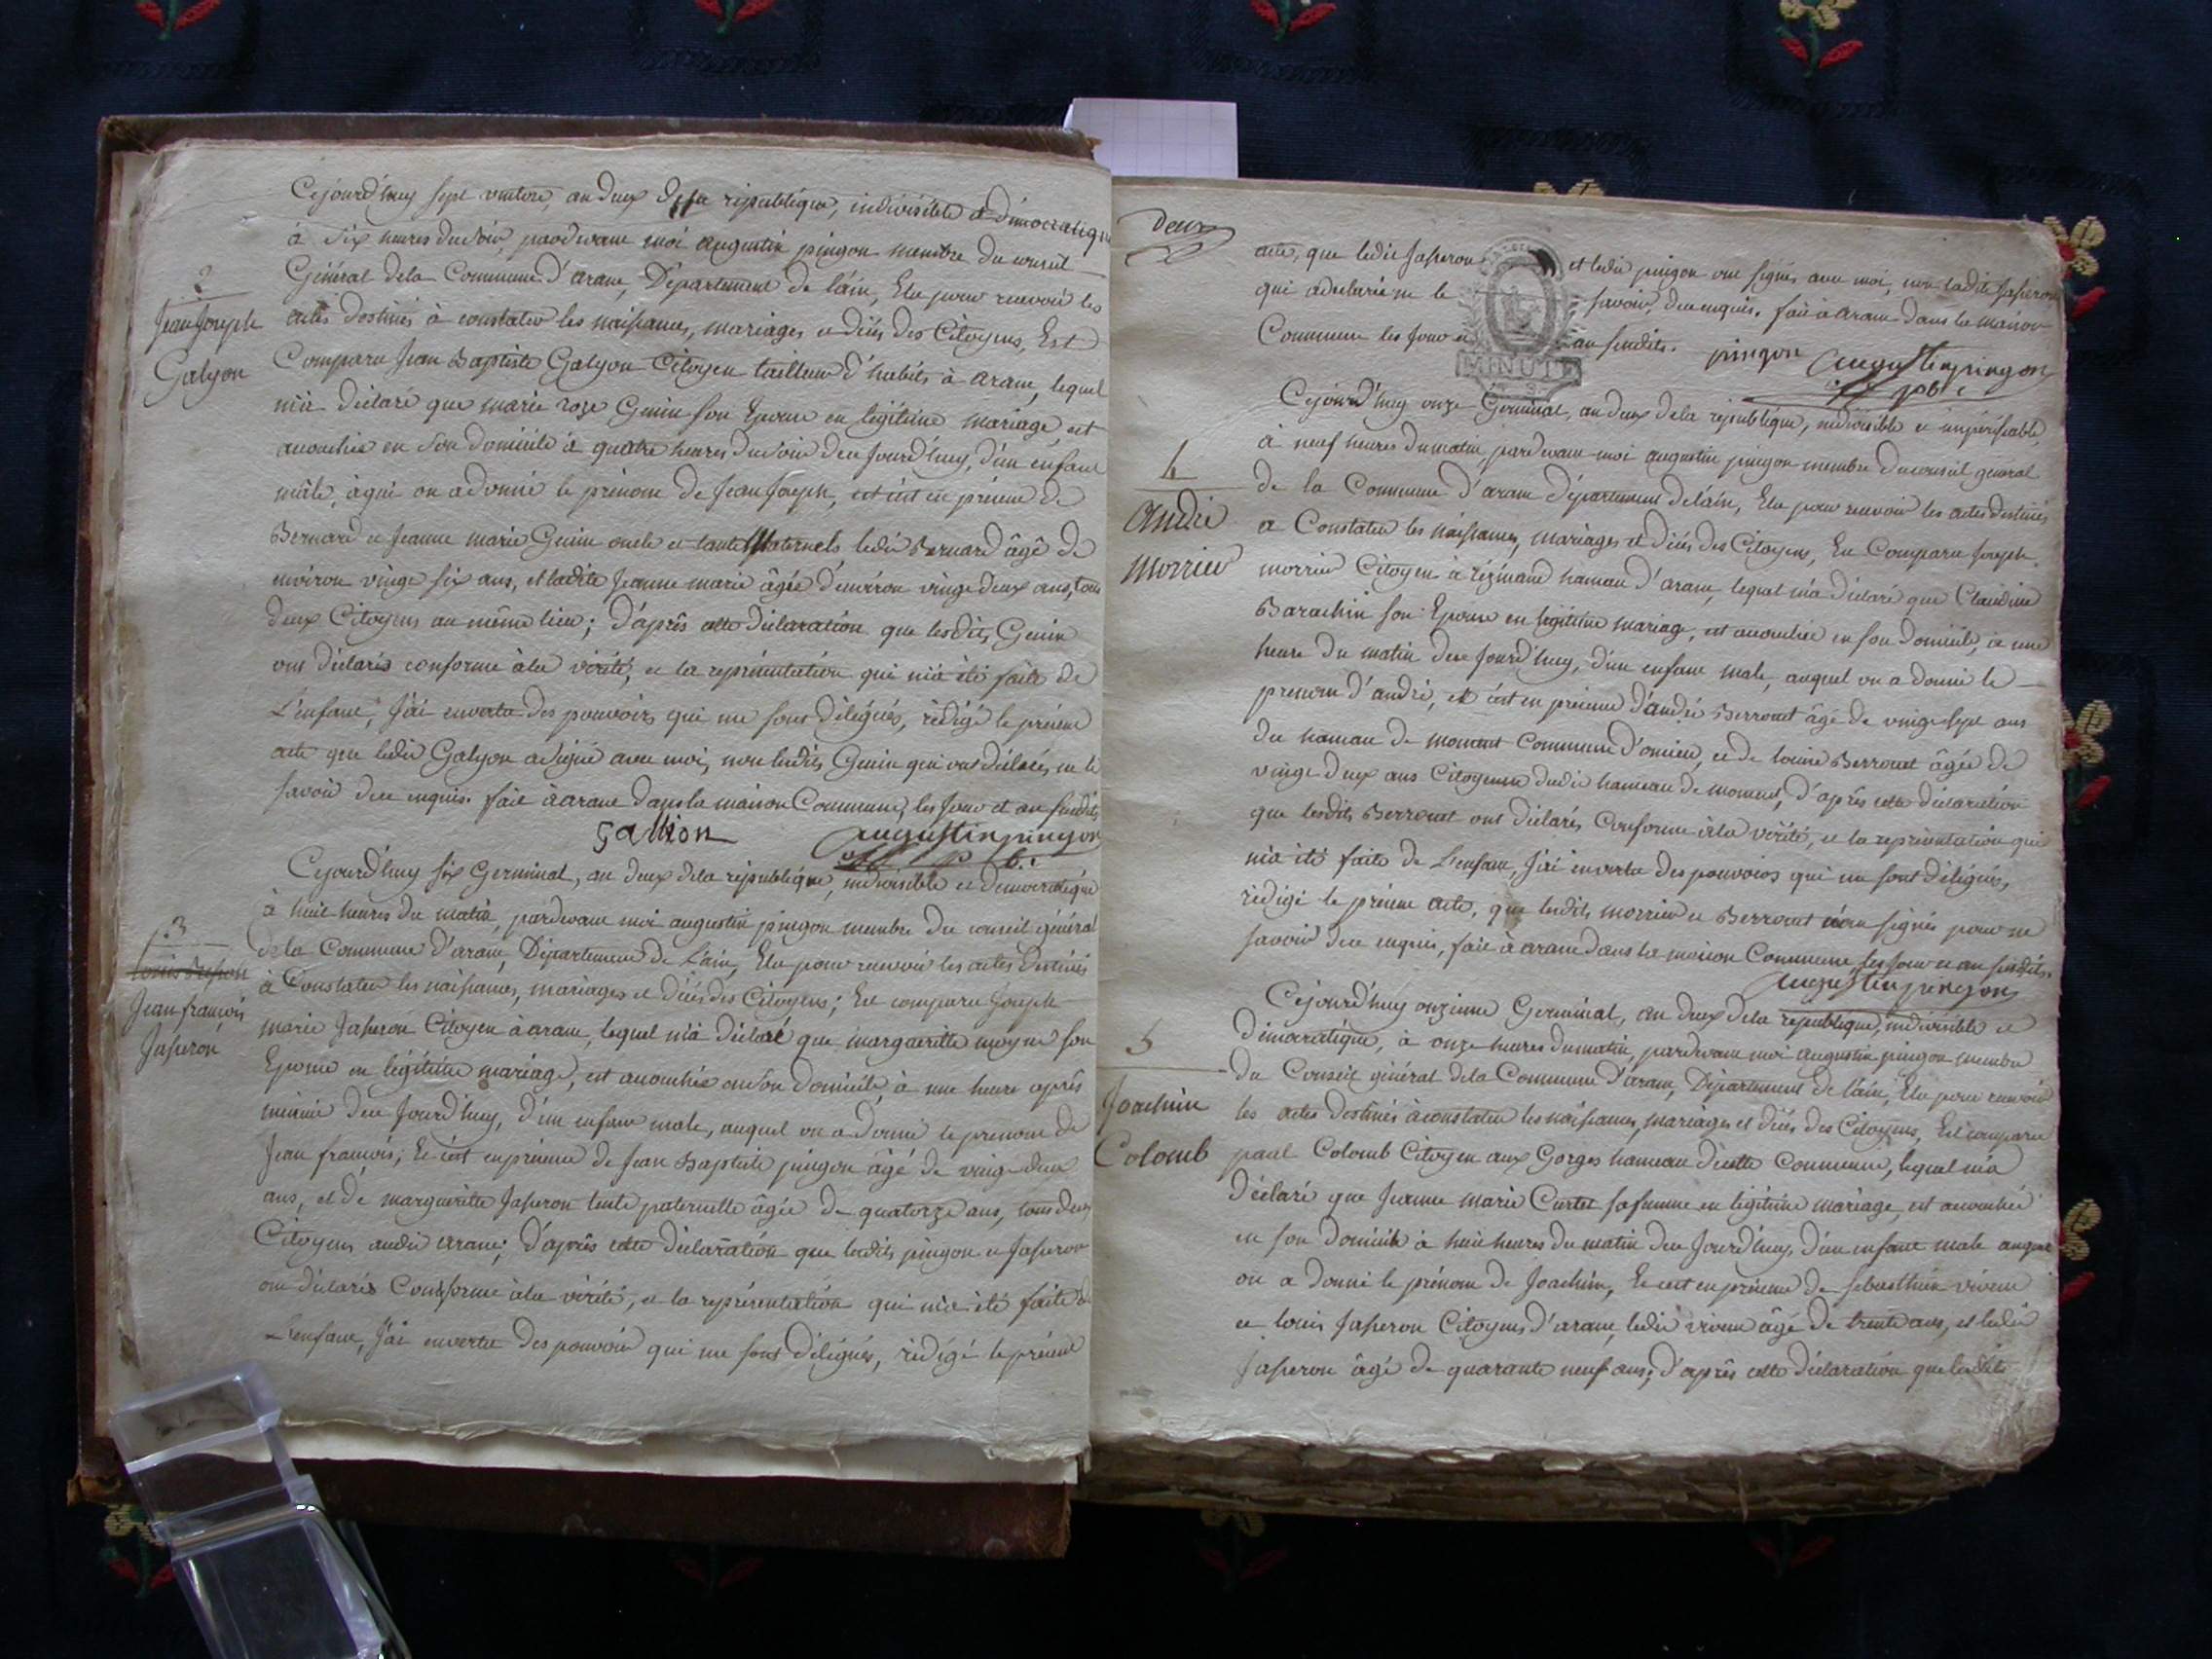 Cejourd'huy sept ventose, an deux de la république, indivisible et démocratique
à six heures du soir, pardevant moi augustin pingon membre du conseil
Général de la Commune d'arane, Département de l'ain, Elu pour recevoir les
actes destinés à constater les naissances, mariages et décés des Citoyens, Est
Comparu Jean Baptiste Galyon Citoyen tailleur d'habits à arane, lequel
m'à déclaré que marie roze Genin son Epouse en légitime mariage, est
accouchée en son domicile à quatre heures du soir de ce Jourd'huy, d'un enfant
mâle, à qui on a donné le prénom de Jean Joseph, et c'est en présence de
Bernard et Jeanne marie Genin oncle et tante Maternels ledit Bernard âgé de
environ vingt six ans, et ladite Jeanne marie âgée d'environ vingt deux ans, tous
deux Citoyens au même lieu; d'après cette déclaration que lesdits Genin
ont déclarés conforme à la vérité, et la représentation qui m'a été faite de
L'enfant, J'ai en vertu des pouvoirs qui me sont délégués, rédigé le présent
acte que ledit Galyon a signé avec moi, non lesdits Genin qui ont déclarés ne le
savoir de ce enquis. fait à arane dans la maison Commune, les Jour et an susdits
2
Jean Joseph
Galyon
gallion augustin pingon
Cejourd'huy six Germinal, an deux de la république, indivisible et démocratique
à huit heures du matin, pardevant moi augustin pingon membre du conseil général
de la Commune d'arane, Département de L'ain, Elu pour recevoir les actes destinés
à Constater les naissances, mariages et décés des Citoyens; Est comparu Joseph
marie Jaseron Citoyen à arane, lequel m'à déclaré que margueritte moyne son
Epouse en légitime mariage, est accouchée en son domicile, à une heure après
minuit de ce Jourd'huy, d'un enfant male, auquel on a donné le prenom de
Jean françois, Et c'est en présence de Jean Baptiste pingon âgé de vingt deux
ans, et de margueritte Jaseron tante paternelle âgée de quatorze ans, tous deux
Citoyens audit arane; d'après cette déclaration que lesdits pingon et Jaseron
ont déclarés Conforme à la vérité, et la représentation qui m'a été faite de
L'enfant, J'ai en vertu des pouvoir qui me sont délégués, rédigé le présent
3
Jean françois
Jaseron
Deux
acte, que ledit Jaseron et ledit pingon ont signés avec moi, non ladite Jaseron
qui a declarée ne le savoir, de ce enquis. fait à arane dans la maison
Commune les Jour et an susdits. pingon augustin pingon
MINUTE
Cejourd'huy onze Germinal, an deux de la république, indivisible et impérissable,
à neuf heures du matin, pardevant moi augustin pingon membre du conseil general
de la Commune d'arane Département de l'ain, Elu pour recevoir les actes destinés
a Constater les naissances, mariages et décés des Citoyens, Est Comparu Joseph
morrier Citoyen à rézinand hameau d'arane, lequel m'à déclaré que Claudine
Barachin son Epouse en légitime mariage, est accouchée en son domicile, à une
heure du matin de ce Jourd'huy, d'un enfant male, auquel on a donné le
prenom d'andré, et c'est en présence d'andré Berrout âgé de vingt sept ans
du hameau de moment Commune d'oncieu, et de louise Berrout âgée de
vingt deux ans Citoyenne dudit hameau de moment, d'après cette déclaration
que lesdits Berrout ont déclarés Conforme à la vérité, et la représentation qui
m'a été faite de L'enfant, J'ai en vertu des pouvoirs qui me sont délégués,
rédigé le présent acte, que lesdits morrier et Berrout n'ont signés pour ne
savoir de ce enquis, fait à arane dans la maison Commune les Jour et an susdits.
4
andré
morrier
augustin pingon
Cejourd'huy onzieme Germinal, an deux de la république, indivisible et
démocratique, à onze heures du matin, pardevant moi augustin pingon membre
du Conseil général de la Commune d'arane, Département de l'ain, Elu pour recevoir
les actes destinés à constater les naissances, mariages et décés des Citoyens, Est comparu
paul Colomb Citoyen aux Gorges hameau de cette Commune, lequel m'a
déclaré que Jeanne marie Curtet sa femme en légitime mariage, est accouchée
en son domicile à huit heures du matin de ce Jourd'huy, d'un enfant male auquel
on a donné le prénom de Joachim, Et c'est en présence de sebasthien
et louis Jaseron Citoyens d'arane, ledit âgé de trente ans, et ledit
Jaseron âgé de quarante neuf ans; d'après cette déclaration que lesdits
5
Joachim
Colomb